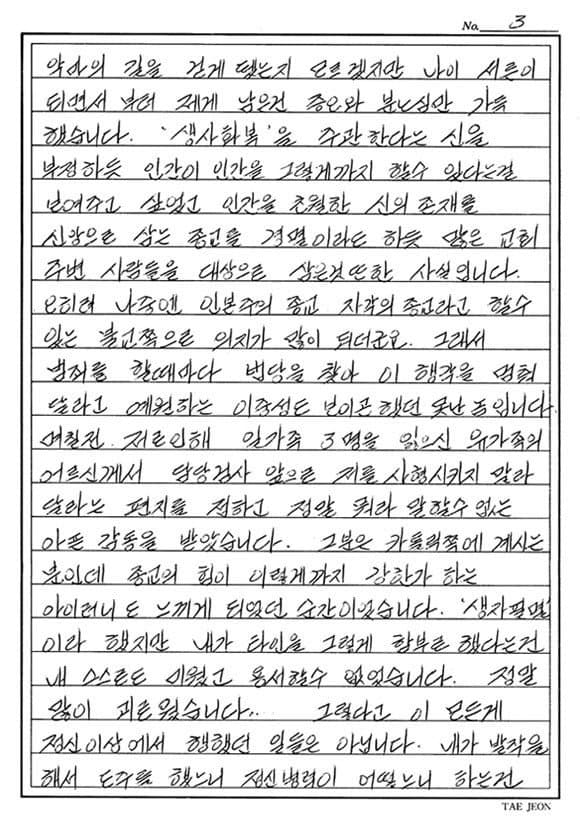 No. 3
악마의 길을 걷게 됐는지 모르겠지만 나이 서른이
되면서 부터 제게 남은건 증오와 분노심만 가득
했습니다. '생사화복'을 주관한다는 신을
부정하듯 인간이 인간을 그렇게까지 할수 있다는걸
보여주고 싶었고 인간을 초월한 신의 존재를
신앙으로 삼는 종교를 경멸이라도 하듯 많은 교회
주변 사람들을 대상으로 삼은것 또한 사실입니다.
오히려 나중엔 인본주의 종교 자각의 종교라고 할수
있는 불교쪽으로 의지가 많이 되더군요. 그래서
범죄를 할때마다 법당을 찾아 이 행각을 멈춰
달라고 애원하는 이중성도 보이곤 했던 못난 놈입니다.
며칠전 저로인해 일가족 3명을 잃으신 유가족의
어르신께서 담당검사 앞으로 저를 사형시키지 말라
달라는 편지를 접하고 정말 뭐라 말할수 없는
아픈 감동을 받았습니다. 그분은 카톨릭쪽에 계시는
분인데 종교의 힘이 이렇게까지 강한가 하는
아이러니도 느끼게 되었던 순간이었습니다. '생자필멸'
이라 했지만 내가 타인을 그렇게 함부로 했다는건
내 스스로도 미웠고 용서할수 없었습니다. 정말
많이 괴로웠습니다.. 그렇다고 이 모든게
정신이상에서 행했던 일들은 아닙니다. 내가 발작을
해서 도주를 했느니 정신병력이 어떻느니 하는건
TAE JEON